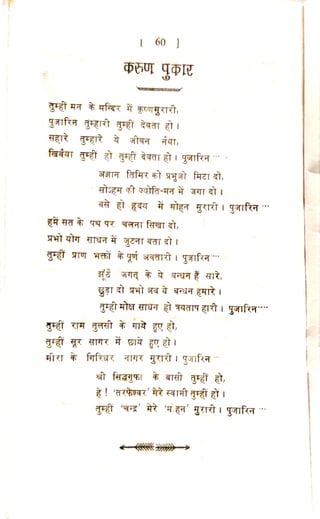 [ 60 ]
करुण पुकार
तुम्हीं मन के मन्दिर में कृष्णमुरारी,
पुजारिन तुम्हारी तुम्हीं देवता हो ।
सहारे तुम्हारे ये जीवन नैया,
खिवैया तुम्ही हो तुम्ही देवता हो । पुजारिन ···
अज्ञान तिमिर को प्रभुजी मिटा दो,
सोऽहम की ज्योति-मन में जगा दो ।
बसे हो हृदय में मोहन मुरारी । पुजारिन ···
हमें सत के पथ पर चलना सिखा दो,
प्रभो योग साधन में जुटना बता दो ।
तुम्हीं प्राण भक्तों के पूर्ण अवतारी । पुजारिन ···
झूंठे जगत् के ये बन्धन हैं सारे,
छुड़ा दो प्रभो अब ये बन्धन हमारे ।
तुम्ही मोक्ष साधन हो त्रयताप हारी । पुजारिन····
तुम्हीं राम तुलसी के गाये हुए हो,
तुम्हीं सूर सागर में छाये हुए हो ।
मीरा के गिरिधर नागर मुरारी । पुजारिन ···
श्री सिद्धगुफा के बासी तुम्हीं हो,
हे ! 'सरफेश्वर' मेरे स्वामी तुम्ही हो ।
तुम्हीं 'चन्द्र' मेरे मुरारी । पुजारिन ···